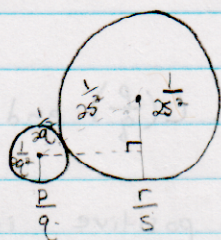 1/2s² 1/2s²
1/2q²
1/2q²
p/q r/s